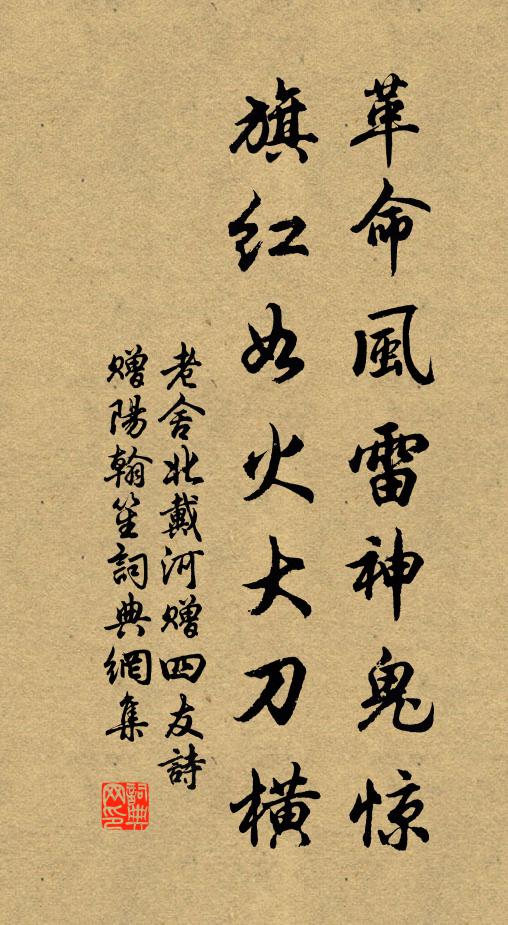 革命風雷神鬼惊
旗红如火大刀橫
老舍北戴河赠四友詩
赠陽翰笙詞典網集
詞典网印